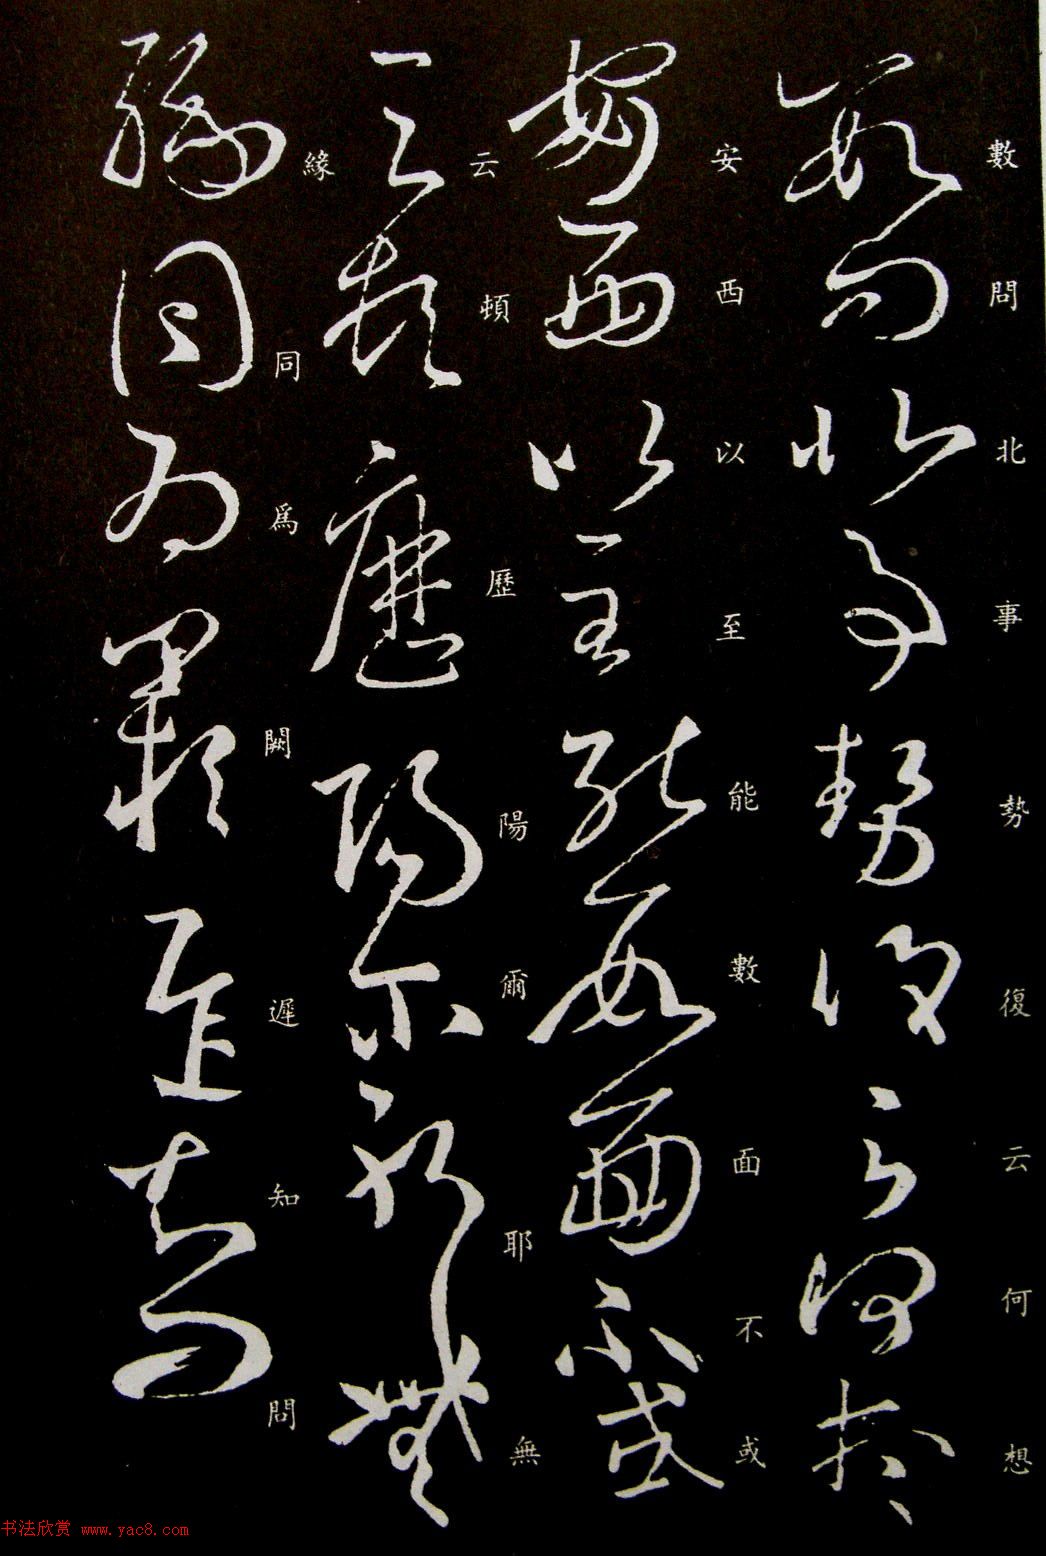 數問北事勢復云何想
安西以至能數面不或
云頓歷陽爾耶無
緣同為闕遲知問
书法欣赏 www.yac8.com